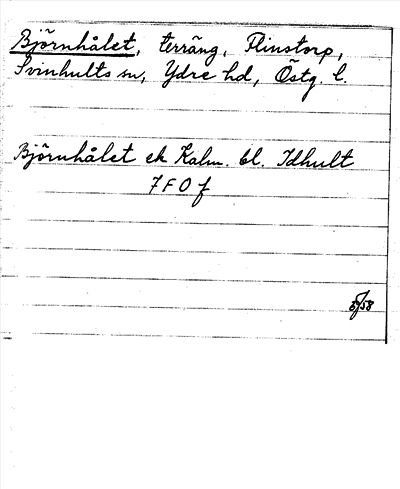 Björnhålet, terräng, Flinstorp,
Svinhults sn, Ydre hd, Östg. l.
Björnhålet ek Kalm. bl. Idhult
7 F 0 f